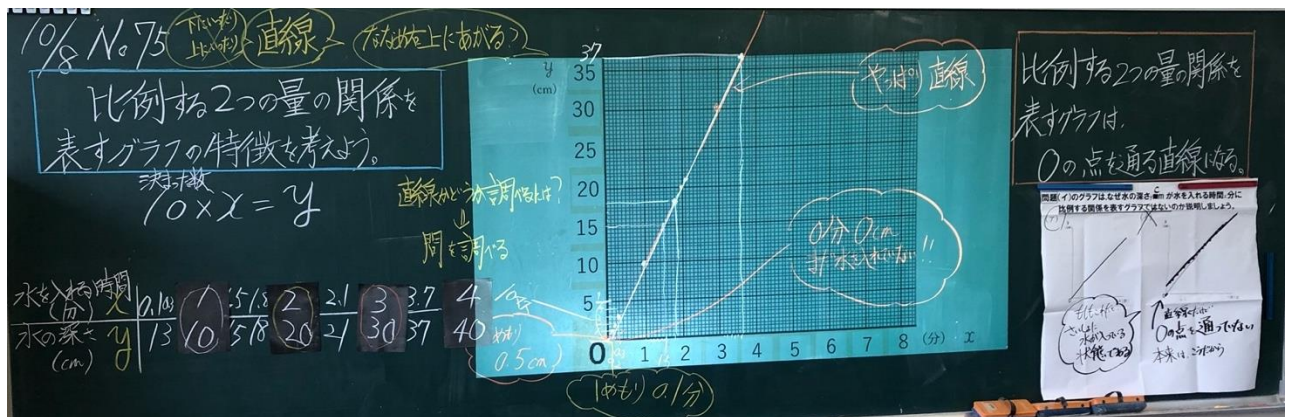 10/8 No.75
下にいったり
上にいったり
直線
ななめ右上にあがる?
比例する2つの量の関係を
表すグラフの特徴を考えよう。
決まった数
10×x=y
直線かどうか調べるには?
間を調べる
水を入れる時間(分) x 0.1 0.3 1 1.5 1.8 2 2.1 3 3.7 4
水の深さ(cm) y 1 3 10 15 18 20 21 30 37 40
めもり
0.5cm
1めもり 0.1分
37
y
(cm)
35
30
25
20
15
10
5
0 1 2 3 4 5 6 7 8 (分) x
やっぱり直線
0分0cm
まだ水を入れていない!!
比例する2つの量の関係を
表すグラフは、
0の点を通る直線になる。
問題(イ)のグラフは、なぜ水の深さcmが水を入れる時間、分に
比例する関係を表すグラフではないのか説明しましょう。
さいしょに
水が入っている
状態である
直線だけど
0の点を通っていない
本来は、